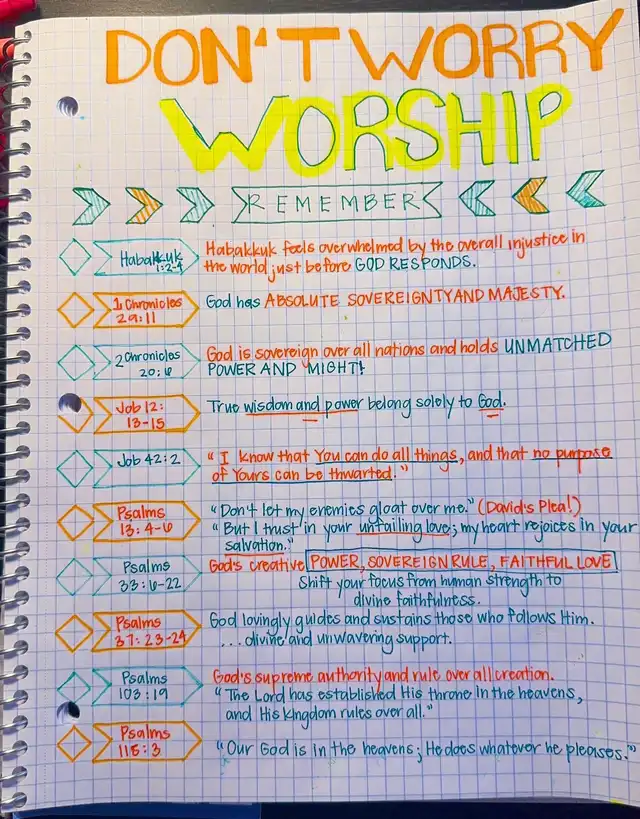 DON'T WORRY
WORSHIP
REMEMBER
Habakkuk
1:2-4
Habakkuk feels overwhelmed by the overall injustice in
the world just before GOD RESPONDS.
1 Chronicles
29:11
God has ABSOLUTE SOVEREIGNTY AND MAJESTY.
2 Chronicles
20:6
God is sovereign over all nations and holds UNMATCHED
POWER AND MIGHT!
Job 12:
13-15
True wisdom and power belong solely to God.
Job 42:2
"I know that You can do all things, and that no purpose
of Yours can be thwarted."
Psalms
13:4-6
"Don't let my enemies gloat over me." (David's Plea!)
"But I trust in your unfailing love; my heart rejoices in your
salvation."
Psalms
33:6-22
God's creative POWER, SOVEREIGN RULE, FAITHFUL LOVE
Shift your focus from human strength to
divine faithfulness.
Psalms
37:23-24
God lovingly guides and sustains those who follows Him.
...divine and unwavering support.
Psalms
103:19
God's supreme authority and rule over all creation.
"The Lord has established His throne in the heavens,
and His kingdom rules over all."
Psalms
115:3
"Our God is in the heavens; He does whatever he pleases."